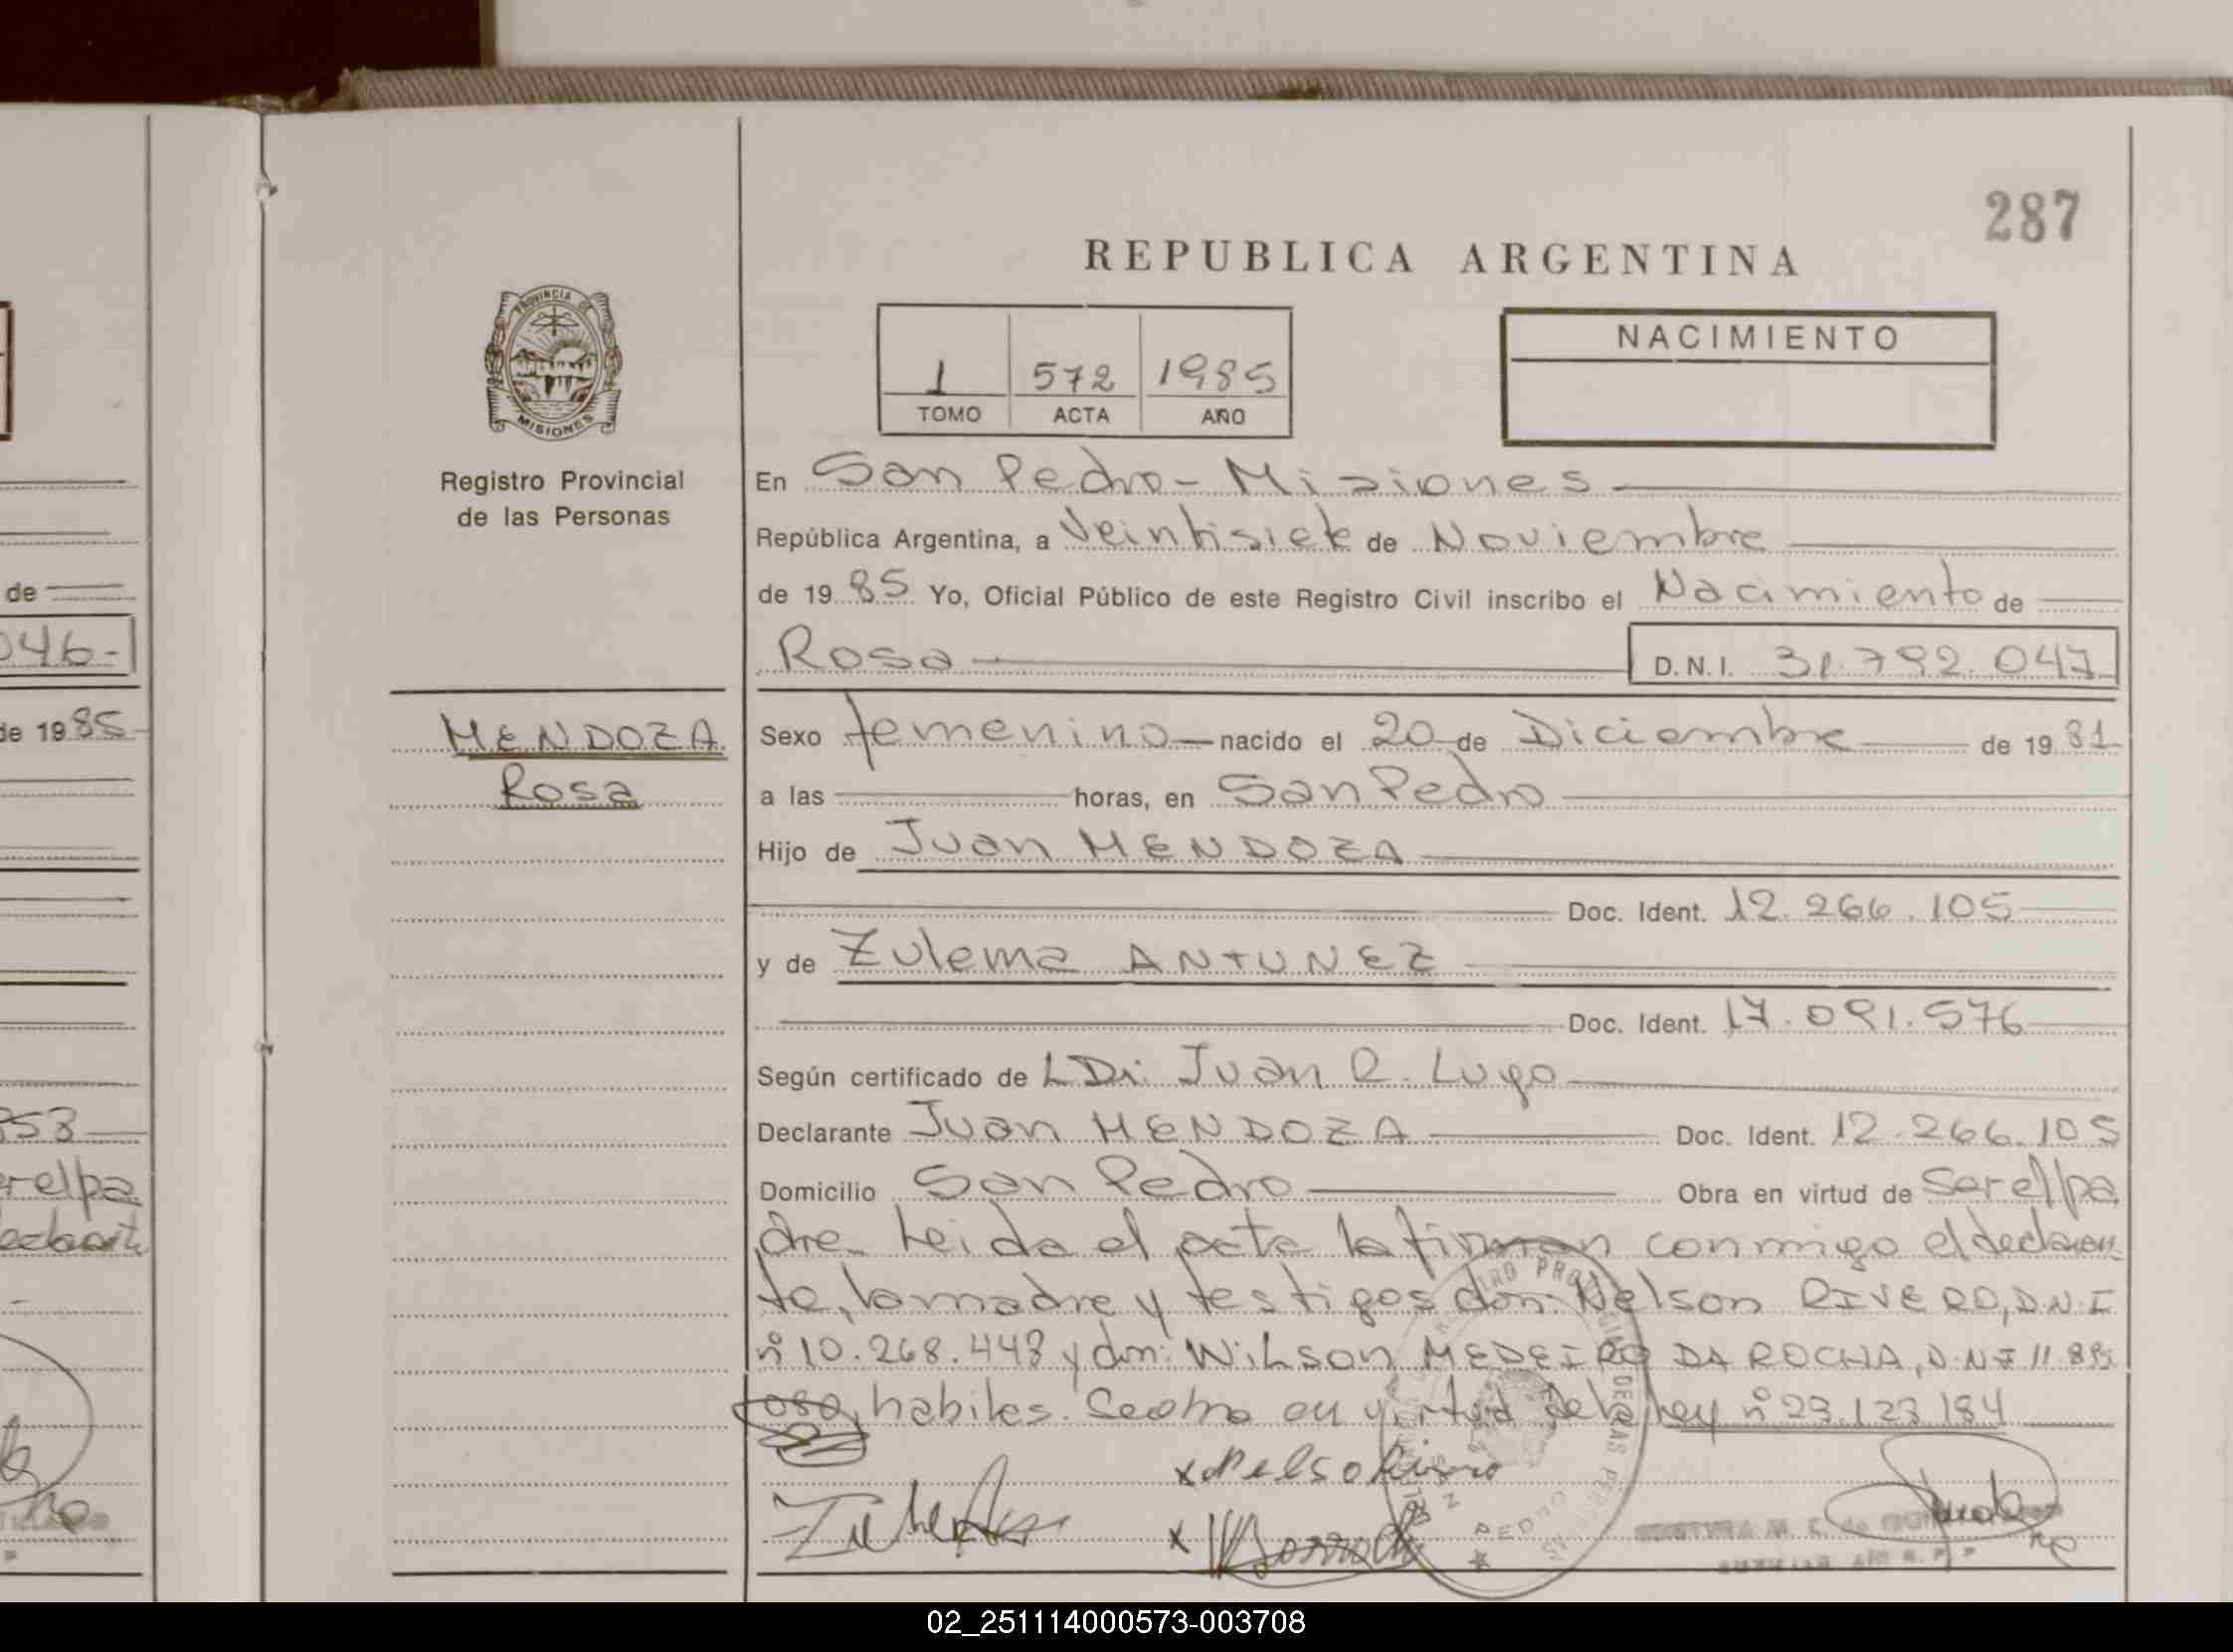 287
REPUBLICA ARGENTINA
PROVINCIA DE
MISIONES
1 572 1985
TOMO ACTA AÑO
NACIMIENTO
Registro Provincial
de las Personas
En San Pedro - Misiones
República Argentina, a Veintisiete de Noviembre
de 1985 Yo, Oficial Público de este Registro Civil inscribo el Nacimiento de
Rosa D.N.I. 31.792.047
MENDOZA
Rosa
Sexo femenino nacido el 20 de Diciembre de 1981
a las horas, en San Pedro
Hijo de Juan MENDOZA
Doc. Ident. 12.266.105
y de Zulema ANTUNEZ
Doc. Ident. 17.091.576
Según certificado de Juan R. Lugo
Declarante Juan MENDOZA Doc. Ident. 12.266.105
Domicilio San Pedro Obra en virtud de Ser el pa
dre. Leida el acta la firman conmigo el declaran
te, la madre y testigos don: Nelson RIVERO, D.N.I
nº 10.268.448 y don: Wilson MEDEIRO DA ROCHA, D.N.I 11.895
habiles. Se obra en virtud de la Ley nº 23.123.184
de
046-
de 1985
853
er el pa
PEDRO
02_251114000573-003708